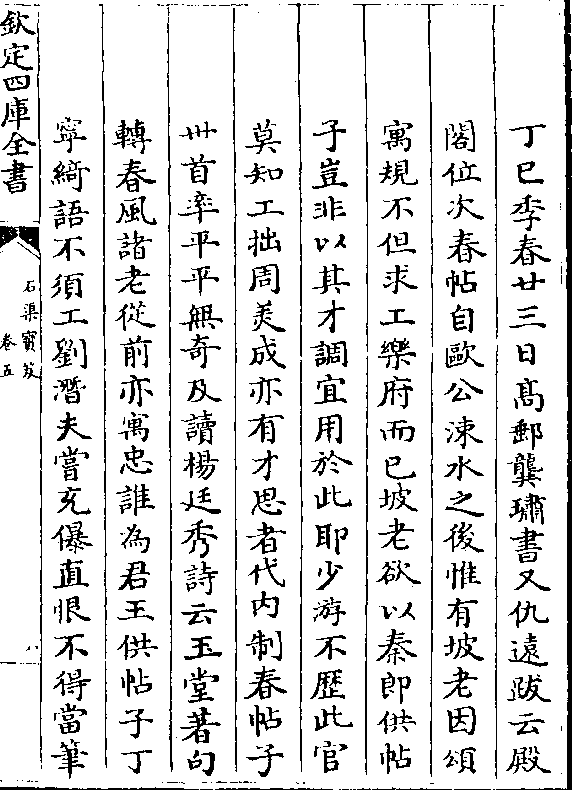 丁巳季春廿三日髙郵龔璛書又仇遠跋云殿
閣位次春帖自歐公涑水之後惟有坡老因頌
寓規不但求工樂府而已坡老欲以秦郎供帖
子豈非以其才調宜用於此耶少游不歴此官
莫知工拙周美成亦有才思者代内制春帖子
卅首率平平無奇及讀楊廷秀詩云玉堂著句
轉春風諸老從前亦寓忠誰為君王供帖子丁
寧綺語不須工劉潛夫嘗充儤直恨不得當筆
欽定四庫全書
石渠寳笈
卷五
八